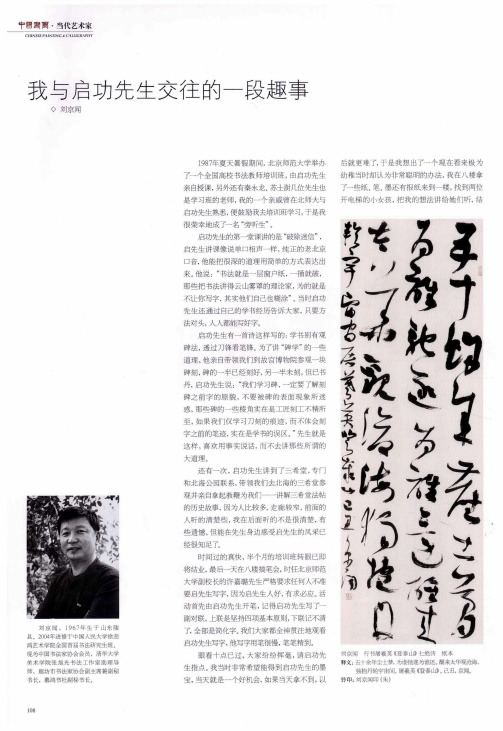 中国书画·当代艺术家
CHINESE PAINTING & CALLIGRAPHY
我与启功先生交往的一段趣事
◇ 刘京闻
1987年夏天暑假期间,北京师范大学举办
了一个全国高校书法教师培训班,由启功先生
亲自授课,另外还有秦永龙、苏士澍几位先生也
是学习班的老师,我的一个亲戚曾在北师大与
启功先生熟悉,便鼓励我去培训班学习,于是我
很荣幸地成了一名“旁听生”。
启功先生的第一堂课讲的是“破除迷信”,
启先生讲课像说单口相声一样,纯正的老北京
口音,他能把很深的道理用简单的方式表达出
来。他说:“书法就是一层窗户纸,一捅就破,
那些把书法讲得云山雾罩的理论家,为的就是
不让你写字,其实他们自己也糊涂”。当时启功
先生还通过自己的学书经历告诉大家,只要方
法对头,人人都能写好字。
启功先生有一首诗这样写的:学书别有观
碑法,透过刀锋看笔锋。为了讲“碑学”的一些
道理,他亲自带领我们到故宫博物院参观一块
碑刻,碑的一半已经刻好,另一半未刻,但已书
丹,启功先生说:“我们学习碑,一定要了解刻
碑之前字的原貌,不要被碑的表面现象所迷
惑,那些碑的一些棱角实在是工匠刻工不精所
至,如果我们仅学习刀刻的痕迹,而不体会刻
字之前的笔迹,实在是学书的误区。”先生就是
这样,喜欢用事实说话,而不去讲那些所谓的
大道理。
还有一次,启功先生讲到了三希堂,专门
和北海公园联系,带领我们去北海的三希堂参
观并亲自拿起教鞭为我们一一讲解三希堂法帖
的历史故事,因为人比较多,走廊较窄,前面的
人听的清楚些,我在后面听的不是很清楚,有
些遗憾,但能在先生身边感受启先生的风采已
经很知足了。
时间过的真快,半个月的培训班转眼已即
将结业,最后一天在八楼搞笔会,时任北京师范
大学副校长的许嘉璐先生严格要求任何人不准
要启先生写字,因为启先生人好,有求必应。活
动首先由启功先生开笔,记得启功先生写了一
副对联,上联是坚持四项基本原则,下联记不清
了,全部是简化字,我们大家都全神贯注地观看
启功先生写字,他写字用笔很慢,笔笔精到。
眼看十点已过,大家纷纷挥毫,请启功先
生指点。我当时非常希望能得到启功先生的墨
宝,当天就是一个好机会,如果当天拿不到,以
后就更难了,于是我想出了一个现在看来极为
幼稚当时却认为非常聪明的办法,我在八楼拿
了一些纸、笔、墨还有报纸来到一楼,找到两位
开电梯的小女孩,把我的想法讲给她们听,结
刘京闻,1967年生于山东陵
县。2004年进修于中国人民大学徐悲
鸿艺术学院全国首届书法研究生班。
现为中国书法家协会会员,清华大学
美术学院张旭光书法工作室助理导
师、廊坊市书法家协会副主席兼副秘
书长、廊坊书社副秘书长。
刘京闻 行书屠羲英《登泰山》七绝诗 纸本
钤印:刘京闻印(朱)
108